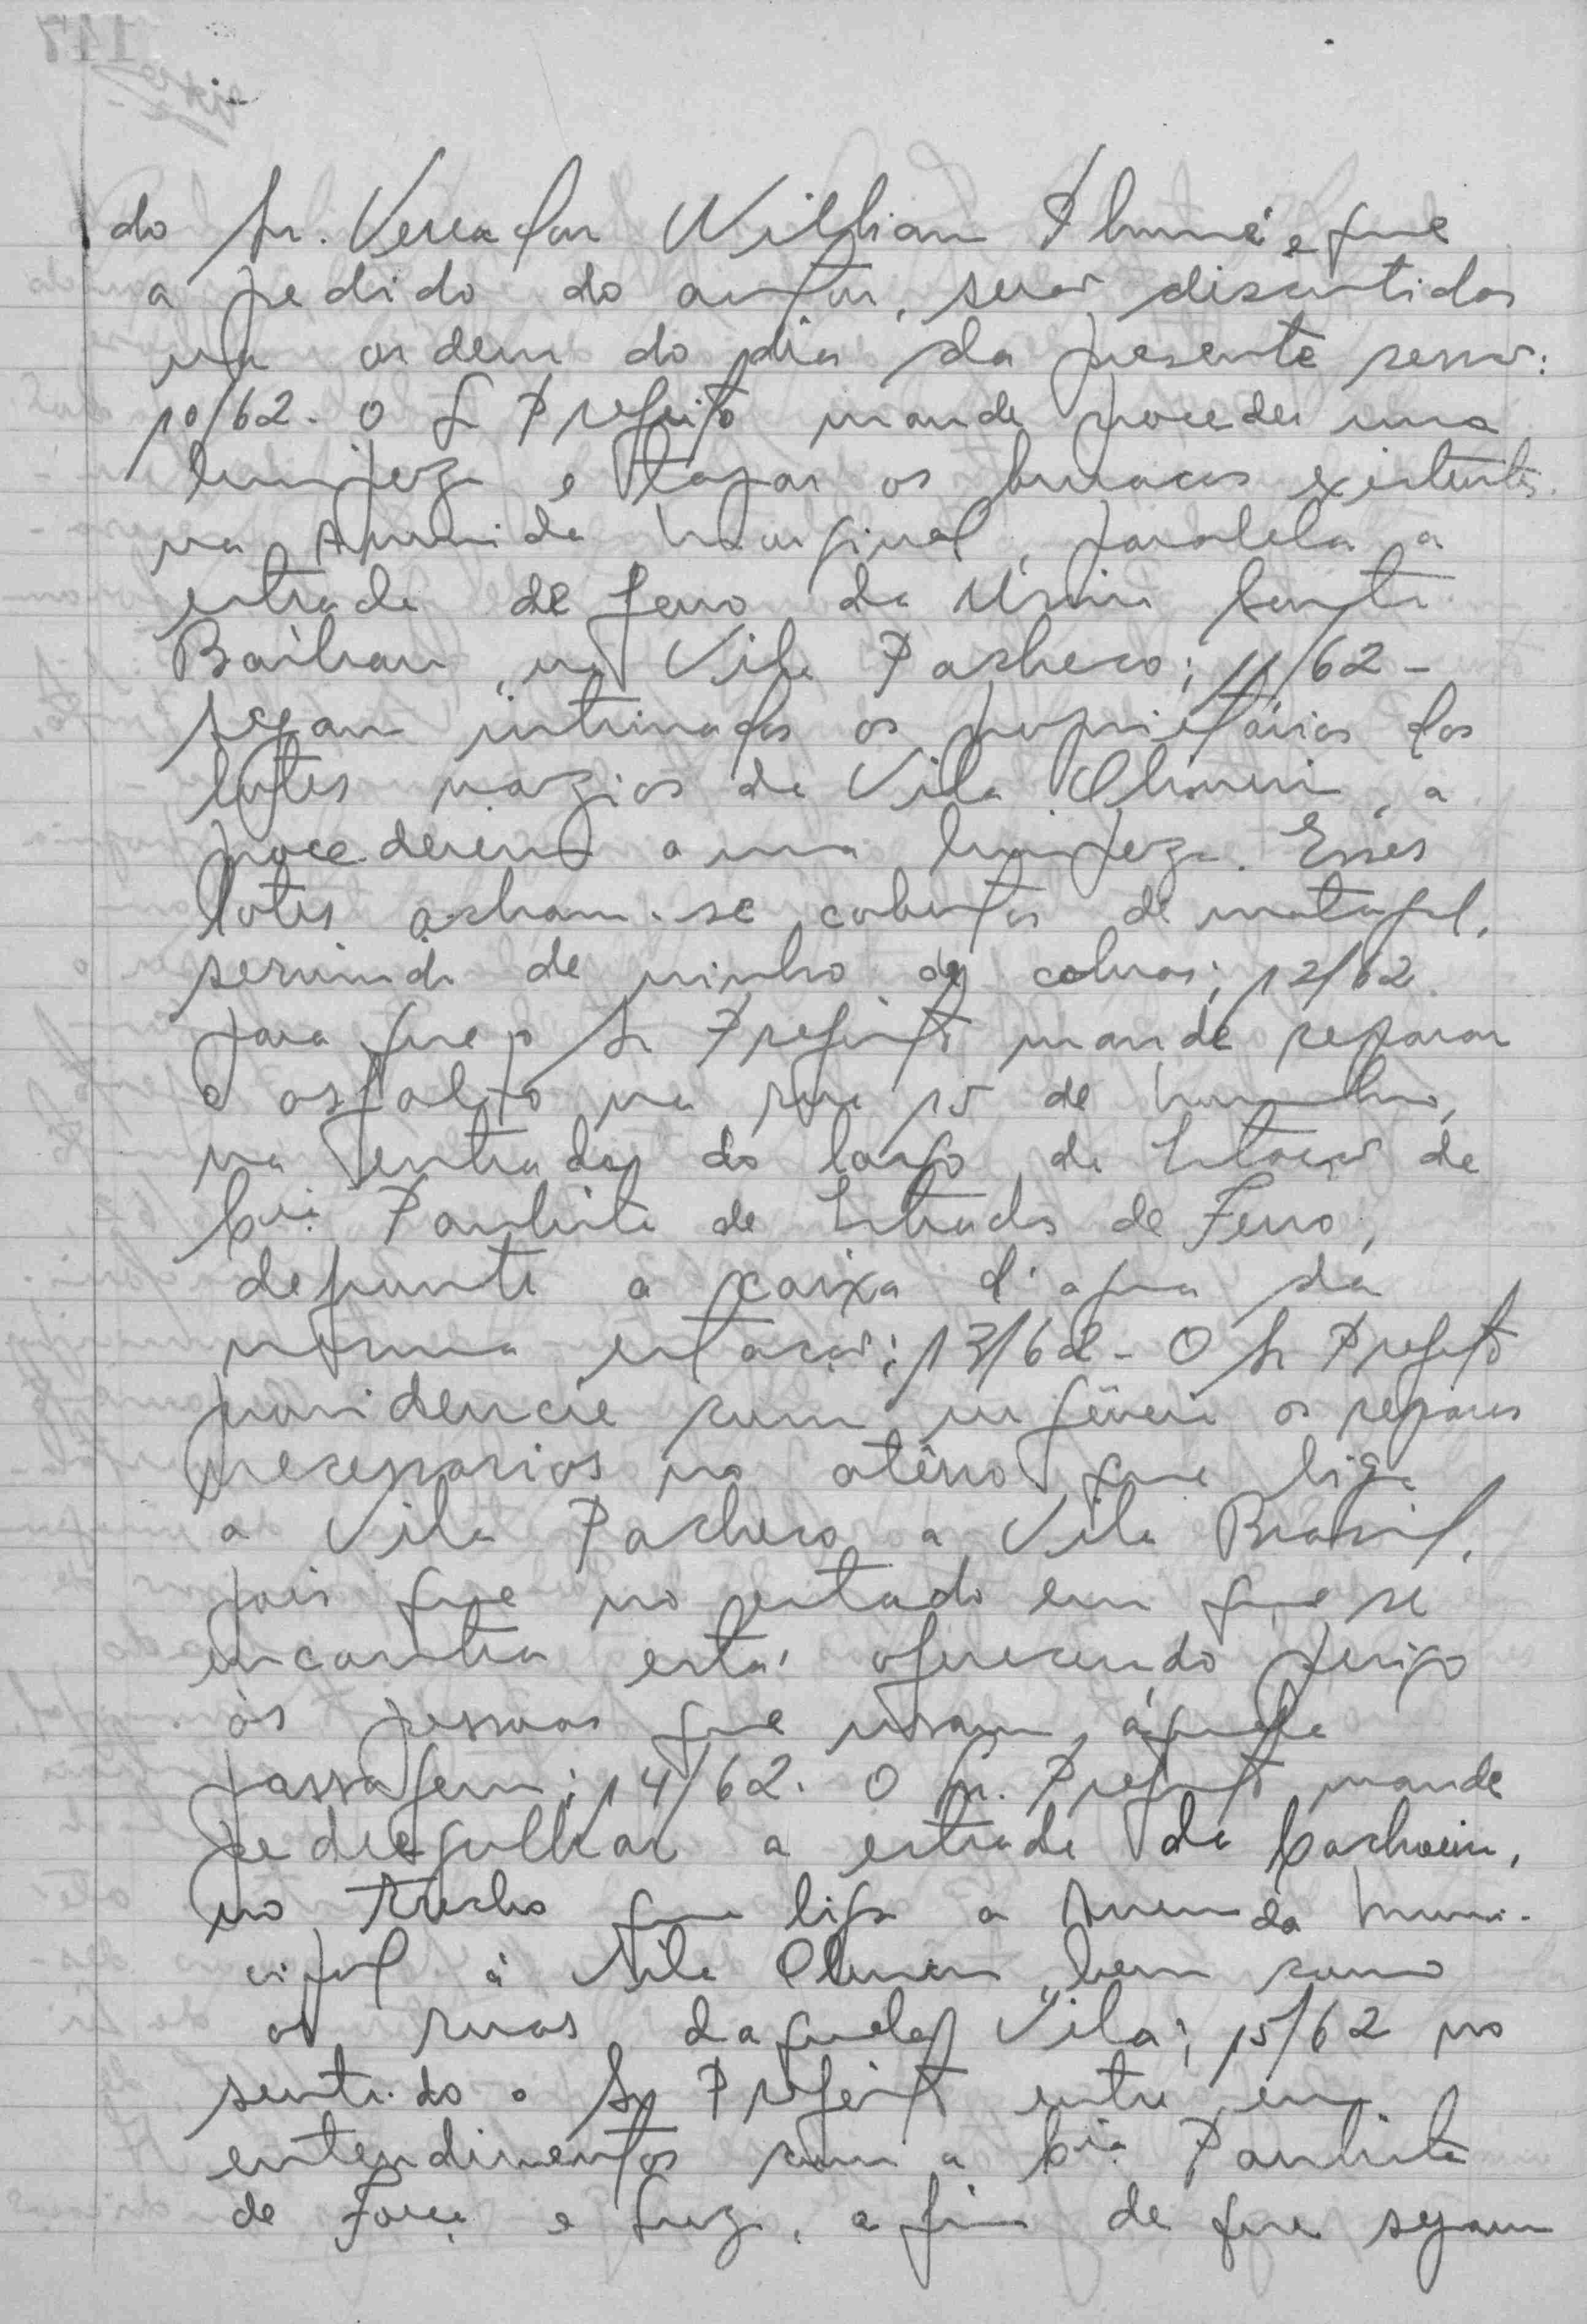 do Sr. Vereador Willian e que
a pedido do autor, será discutidos
na ordem do dia da presente sessão:
10/62 - O Sr Prefeito mande proceder uma
limpeza e tapar os buracos existentes
na Avenida Marginal, paralela a
estrada de ferro da Usina Santa
Barbara, na Vila Pacheco; 11/62 -
sejam intimados os proprietários dos
lotes vazios da Vila a
procederem a uma limpeza. Esses
lotes acham-se cobertos de matagal,
servindo de ninho de cobras; 12/62
para que o Sr Prefeito mande reparar
o asfalto na rua 15 de Novembro,
na entrada do largo da Estação da
Cia. Paulista de Estrada de Ferro,
defronte a caixa d'agua da
mesma estação; 13/62 - O Sr Prefeito
providencie com urgência os reparos
necessarios no atêrro que liga
a Vila Pacheco a Vila Brasil,
pois que no estado em que se
encontra está oferecendo perigo
às pessoas que usam àquela
passagem; 14/62. O Sr. Prefeito mande
pedregulhar a estrada da Cachoeira,
no trecho que liga a Avenida Muni-
cipal à Vila bem como
as ruas daquela Vila; 15/62 no
sentido o Sr Prefeito entre em
entendimentos com a Cia. Paulista
de Força e Luz, a fim de que sejam